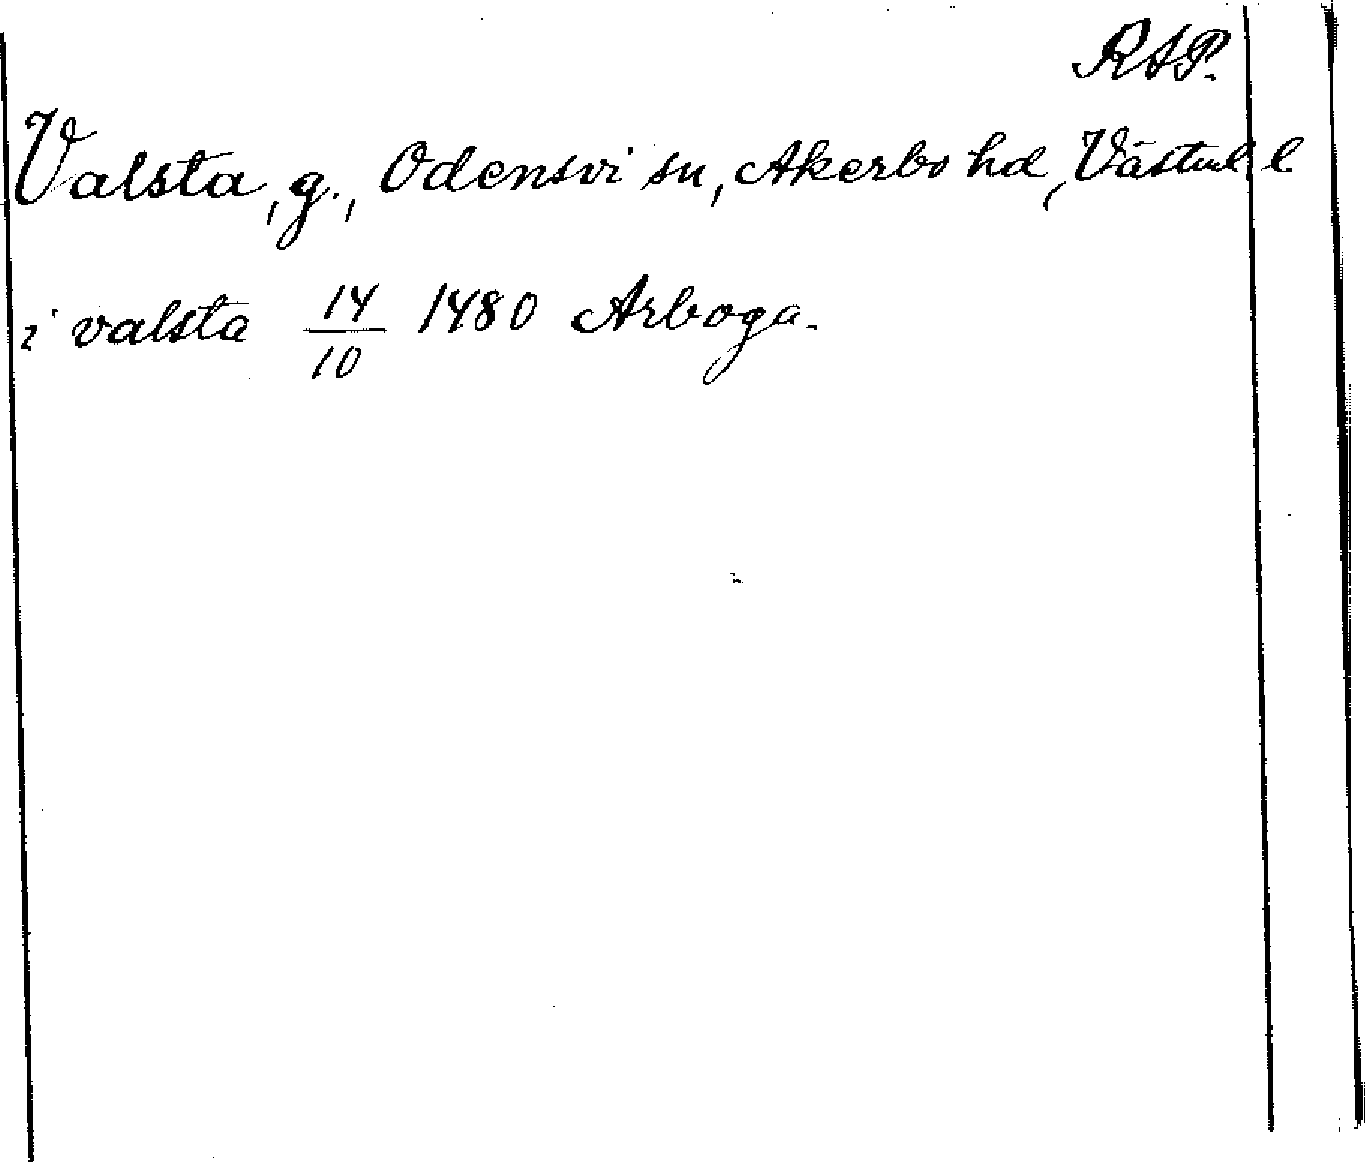 RAP.
Valsta, g., Odensvi sn, Åkerbo hd, Västml l
i valsta 14/10 1480 Arboga.